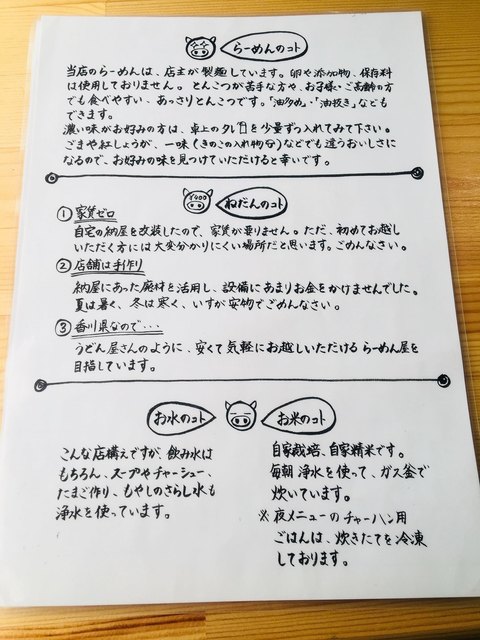 らーめんのコト
当店のらーめんは、店主が製麺しています。卵や添加物、保存料
は使用しておりません。とんこつが苦手な方や、お子様・ご高齢の方
でも食べやすい、あっさりとんこつです。「油多め」・「油抜き」なども
できます。
濃い味がお好みの方は、卓上のタレを少量ずつ入れてみて下さい。
ごまや紅しょうが、一味(きのこの入れ物分)などでも違うおいしさに
なるので、お好みの味を見つけていただけると幸いです。
¥400
ねだんのコト
① 家賃ゼロ
自宅の納屋を改装したので、家賃が要りません。ただ、初めてお越し
いただく方には大変分かりにくい場所だと思います。ごめんなさい。
② 店舗は手作り
納屋にあった廃材を活用し、設備にあまりお金をかけませんでした。
夏は暑く、冬は寒く、いすが安物でごめんなさい。
③ 香川県なので…
うどん屋さんのように、安くて気軽にお越しいただけるらーめん屋を
目指しています。
お水のコト
こんな店構えですが、飲み水は
もちろん、スープやチャーシュー、
たまご作り、もやしのさらし水も
浄水を使っています。
お米のコト
自家栽培、自家精米です。
毎朝浄水を使って、ガス釜で
炊いています。
※夜メニューのチャーハン用
ごはんは、炊きたてを冷凍
しております。